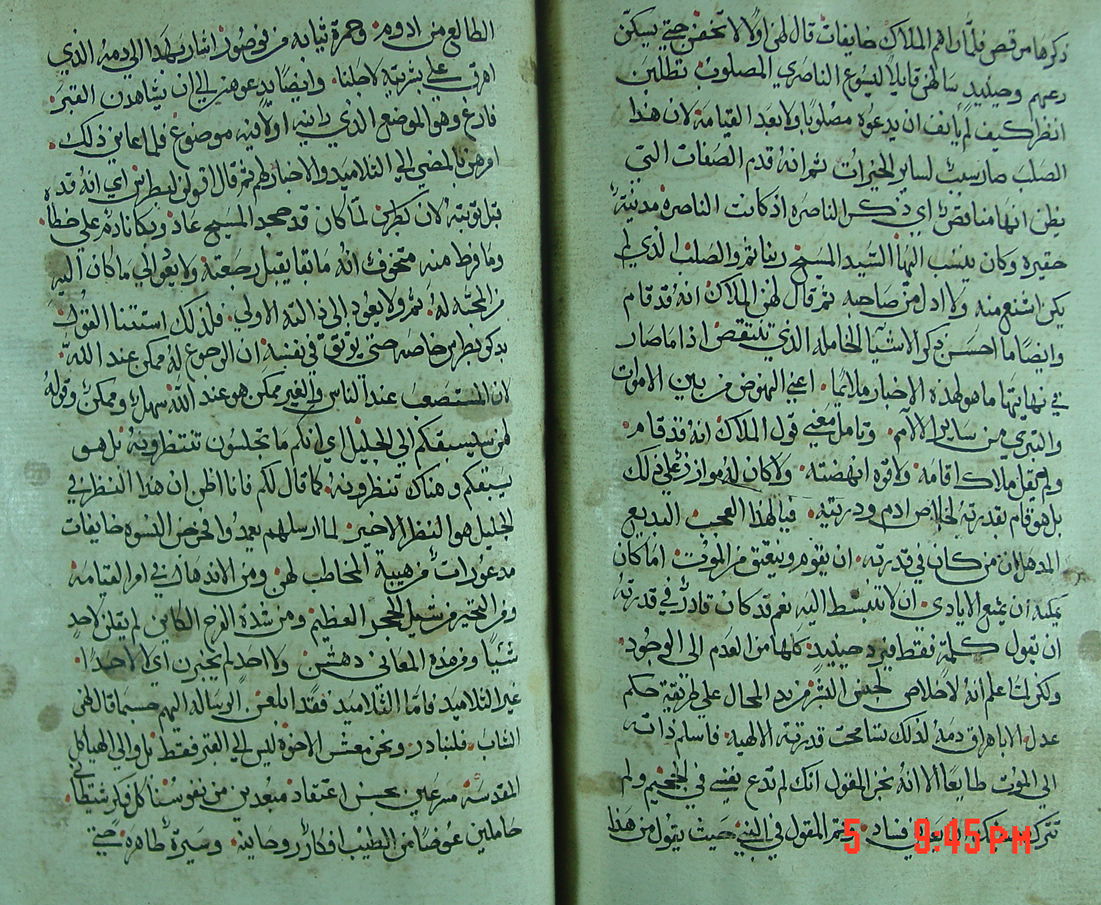 ذكرها مرقص فلما راهم الملاك خايفات قال لهن اولا لا تخفن حتي يسكن
رعبهم وحينيد سالهن قايلا ليسوع الناصري المصلوب تطلبن
انظر كيف لم يانف ان يدعوه مصلوبا ولا بعد القيامة لان هذا
الصلب صار سببا لساير الخيرات ثم انه قدم الصفات التي
يظن انها مناقص اي ذكر الناصره اذ كانت الناصره مدينة
حقيره وكان ينسب اليها السيد المسيح ربنا ثم والصلب الذي لم
يكن اشنع منه ولا ادل من صاحبه ثم قال لهن الملاك انه قد قام
وايضا ما احسن ذكر الاشيا الخامله الذي تنتقص اذا ما صار
في نهايتها ما هو لهذه الاخبار ملايما اعني النهوض من بين الاموات
والتبري من ساير الالام وتامل معني قول الملاك انه قد قام
ولم يقل ملاك اقامه ولا قوه انهضته ولا كان له موازر علي ذلك
بل هو قام بقدرته لخلاص ادم ودريته فيا لهذا العجب البديع
المدهل ان من كان في قدرته ان يقوم وينعتق من الموت اما كان
يمكنه ان يمنع الايادي ان لا تنبسط اليه نعم قد كان قادر في قدرته
ان يقول كلمة فقط فيرد حينيد كلها من العدم الي الوجود
ولكن لما علم انه لا خلاص لجنس البشر من يد المحال علي طريقة حكم
عدل الا باهراق دمه لذلك تسامحت قدرته الالهية فاسلم ذاته
الي الموت طايعا الا انه نحن المقول انك لم تدع نفسي في الجحيم ولم
تترك فساد المقول في النبي حيث يقول من هذا
5 9:45PM
الطالع من ادوم وحمرة ثيابه من بصور اشار بهذا الي دمه الذي
اهرق علي تربته لاجلنا وايضا يدعوهن الي ان يشاهدن القبر
فارغ وهو الموضع الذي راينه اولا فيه موضوع فلما عاين ذلك
امرهن بالمضي الي التلاميد والاخبار لهم ثم قال قولن لبطرس اي انه قد
قبل توبته لان بطرس لما كان قد جحد المسيح عاد وبكا نادم علي خطا
وما فرط منه متخوف انه ما بقا يقبل رجعته ولا يعود الي ما كان اليه
من المحبة له ثم ولا يعود الي ذالته الاولي فلذلك استتنا القول
بدكر بطرس خاصه حتي يوثق في نفسه ان الرجوع له ممكن عند الله
لان المستصعب عند الناس والغير ممكن هو عند الله سهل وممكن وقوله
لهن سيسبقكم الي الجليل اي انكم ما تجلسون تنتظرونه بل هو
يسبقكم وهناك تنظرونه كما قال لكم فانا اظن ان هذا النظر في
الجليل هو النظر الاخير لما ارسلهم يعمدوا فخرجن النسوه خايفات
مدعورات من هيبة المخاطب لهن ومن الاندهال في امر القيامه
ومن التحير من شيل الحجر العظيم ومن شدة الرج الكاين لم يقلن لاحد
شيا ومن هذه المعاني دهشن ولا احد لم يخبرن اي لا احدا
غير التلاميد فاما التلاميد فقد ابلغن الرساله اليهم حسبما قال لهن
الشاب فلنبادر ونحن معشر الاخوة ليس الي القبر فقط بل والي الهياكل
المقدسه مسرعين بحسن اعتقاد مبعدين من نفوسنا كل فكر شيطاني
حاملين عوضا من الطيب افكار روحانيه وسيرة طاهره حتي